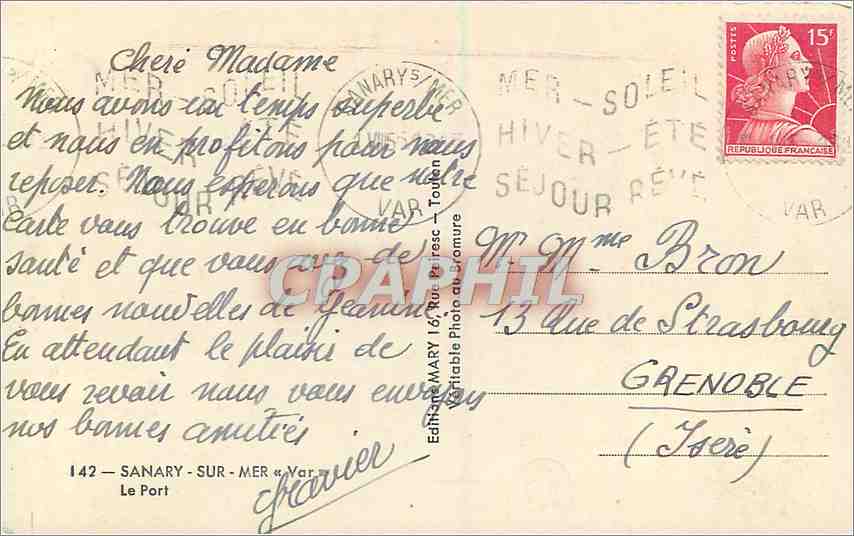 Cheré Madame
Nous avons un temps superbe
et nous en profitons pour nous
reposer. Nous esperons que notre
Carte vous trouve en bonne
santé et que vous avez de
bonnes nouvelles de Jeanine
En attendant le plaisir de
vous revoir nous vous envoyons
nos bonnes amitiés
Gravier
142 — SANARY - SUR - MER « Var »
Le Port
Editions MARY 16, Rue Peiresc — Toulon
Véritable Photo au Bromure
MER — SOLEIL
HIVER — ÉTÉ
SÉJOUR RÊVÉ
SANARY S/MER
VAR
MER — SOLEIL
HIVER — ÉTÉ
SÉJOUR RÊVÉ
POSTES
15F
REPUBLIQUE FRANCAISE
VAR
Mr Mme Bron
13 Rue de Strasbourg
GRENOBLE
(Isère)
CPAPHIL